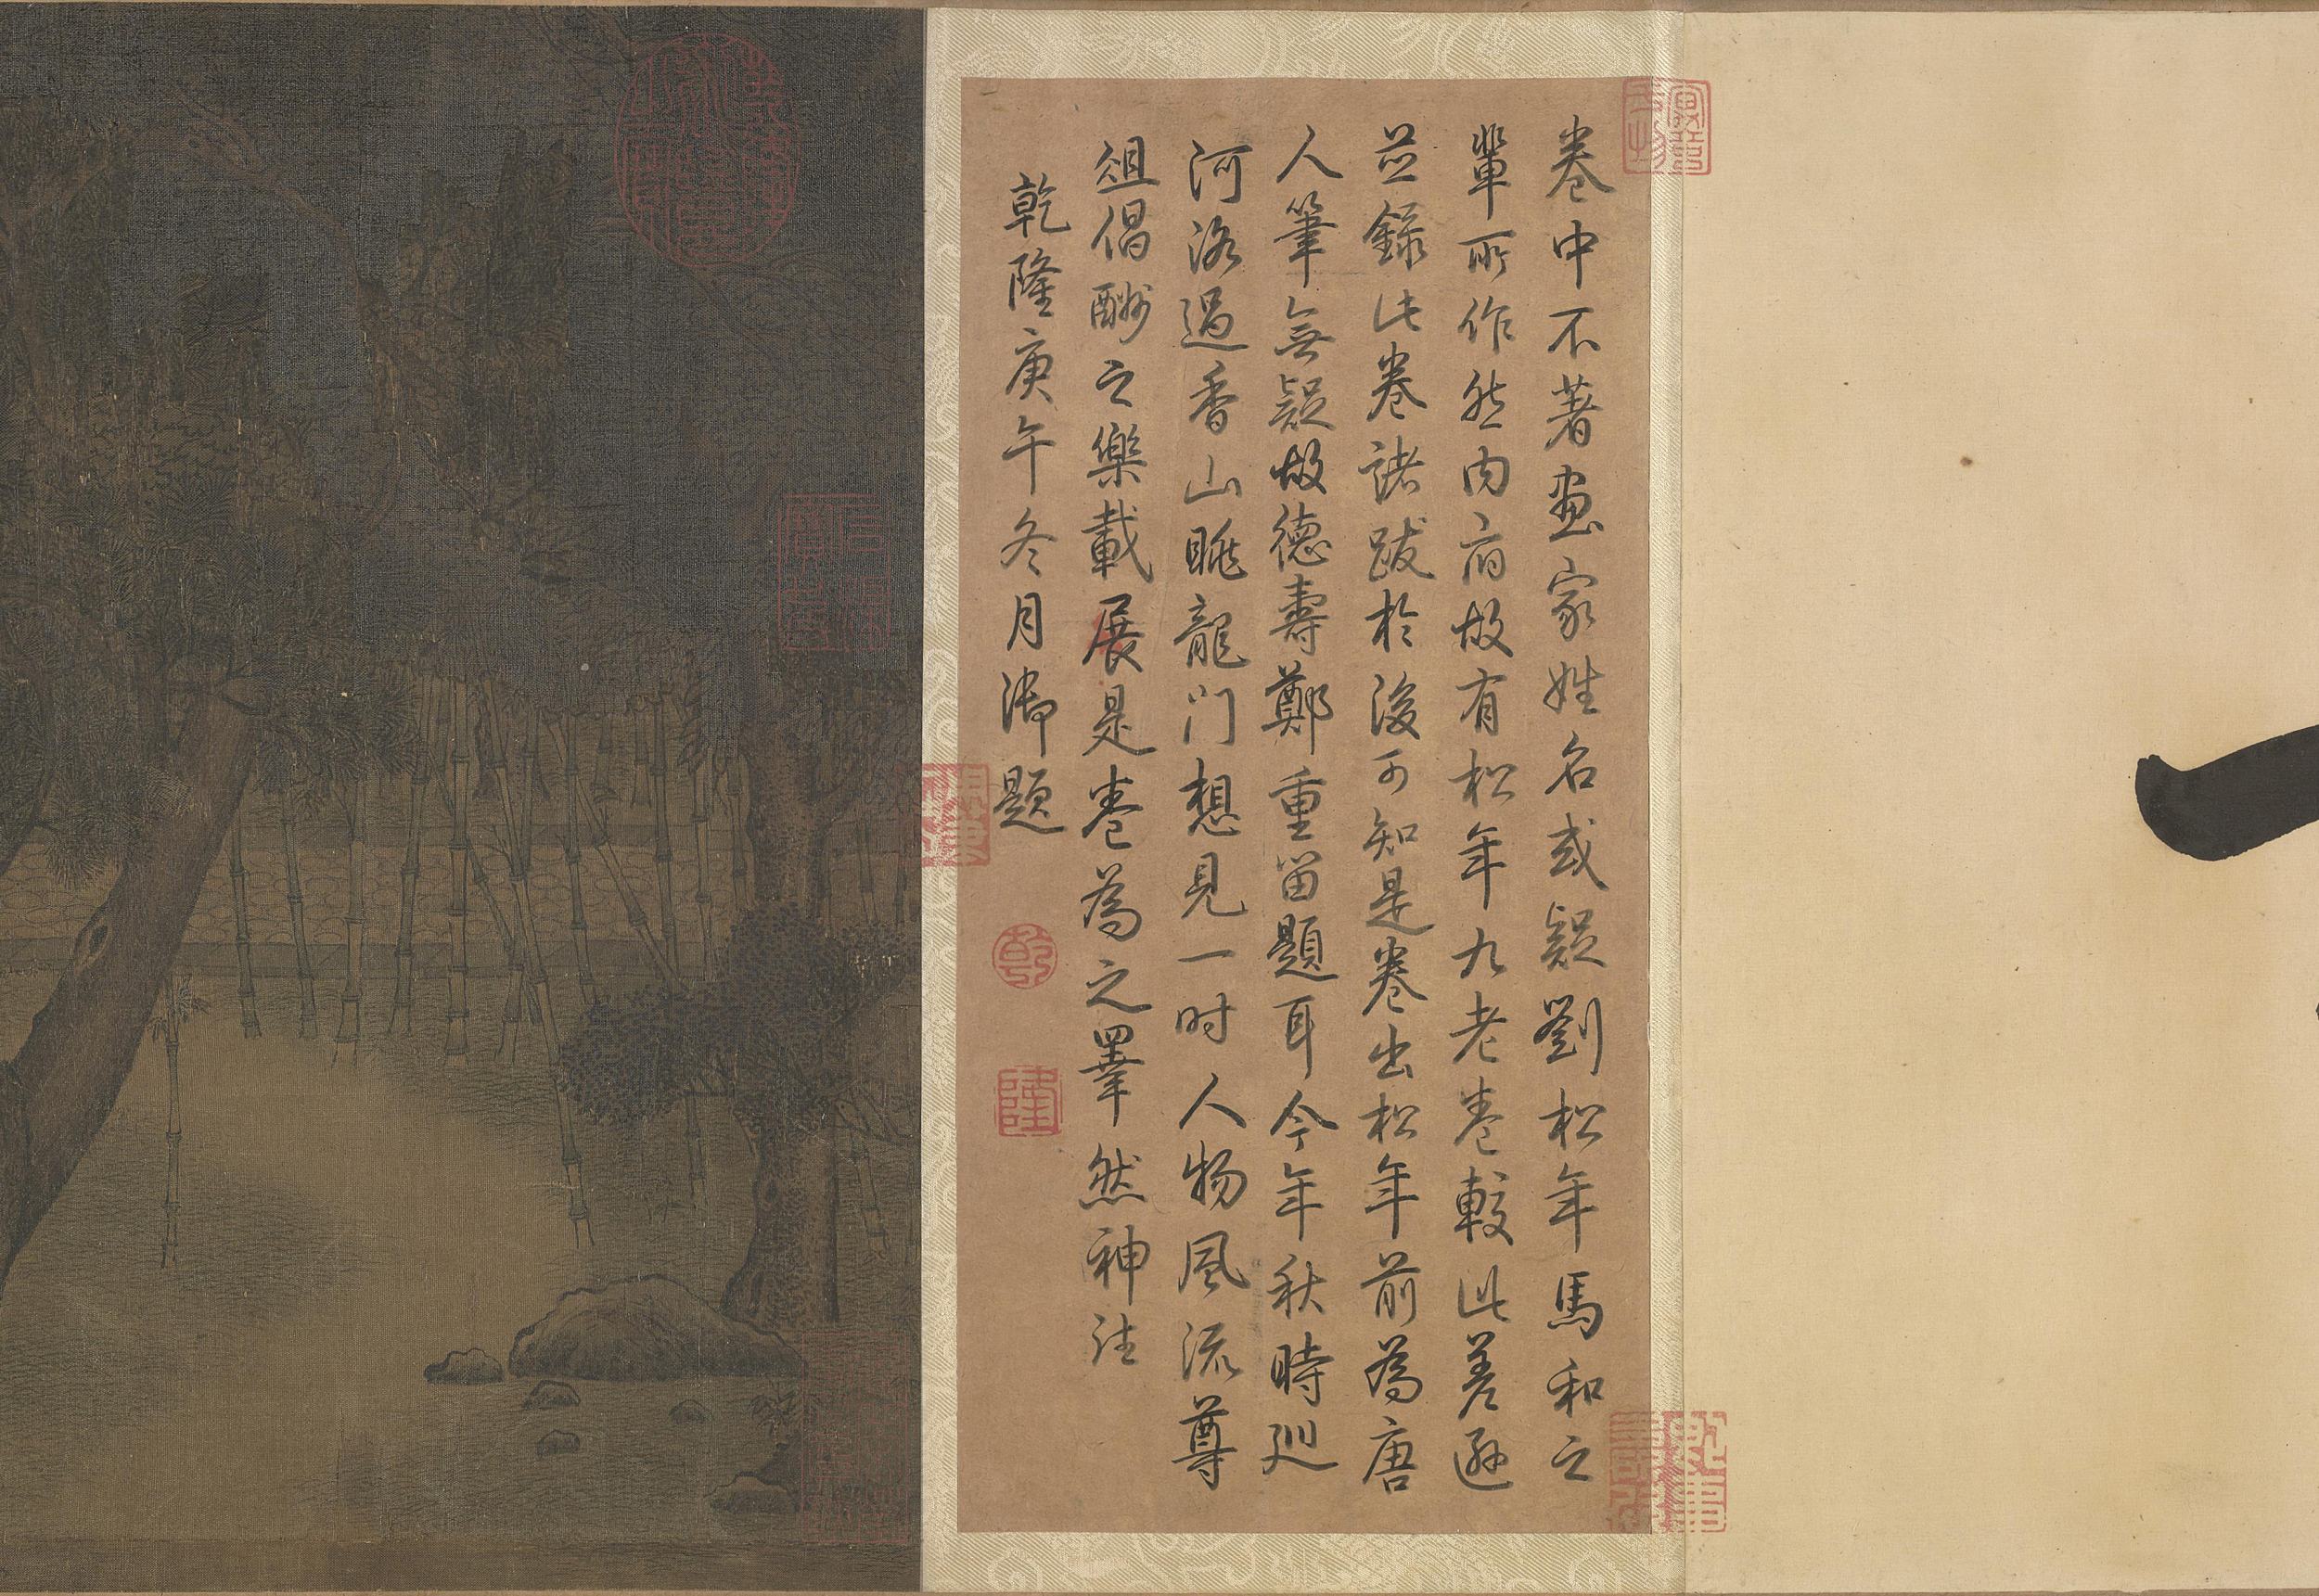 卷中不著畫家姓名或疑劉松年馬和之
輩所作然內府故有松年九老卷較此差遜
並錄此卷諸跋於後可知是卷出松年前為唐
人筆無疑故德壽鄭重留題耳今年秋時巡
河洛過香山眺龍門想見一時人物風流尊
俎倡酬之樂載展是卷為之睪然神往
乾隆庚午冬月御題
乾
隆